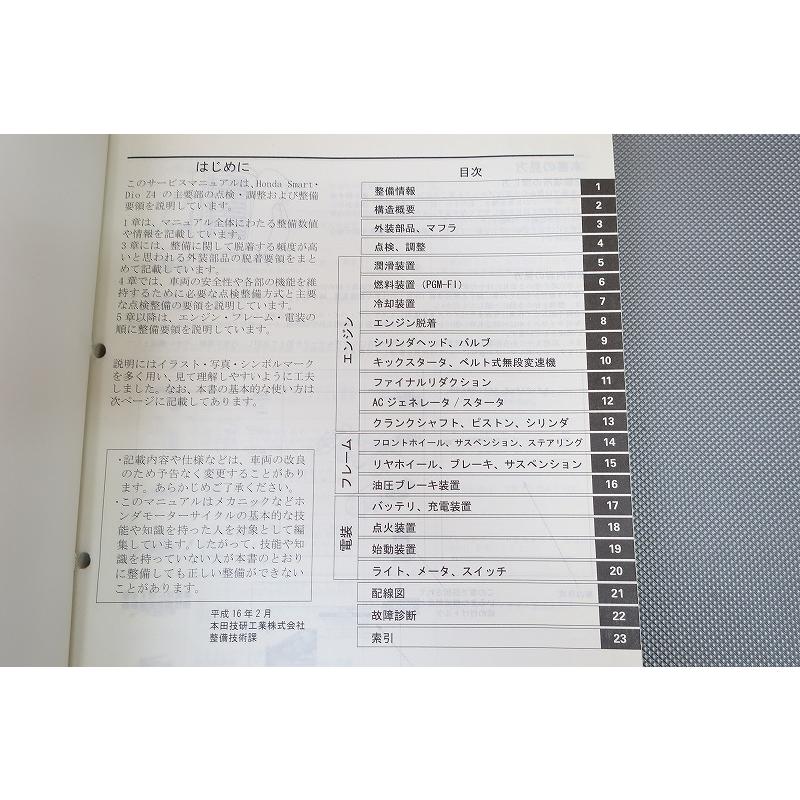 はじめに
このサービスマニュアルは、Honda Smart・
Dio Z4 の主要部の点検・調整および整備
要領を説明しています。
1 章は、マニュアル全体にわたる整備数値
や情報を記載しています。
3 章には、整備に関して脱着する頻度が高
いと思われる外装部品の脱着要領をまと
めて記載しています。
4 章では、車両の安全性や各部の機能を維
持するために必要な点検整備方式と主要
な点検整備の要領を説明しています。
5 章以降は、エンジン・フレーム・電装の
順に整備要領を説明しています。
説明にはイラスト・写真・シンボルマーク
を多く用い、見て理解しやすいように工夫
しました。なお、本書の基本的な使い方は
次ページに記載してあります。
・記載内容や仕様などは、車両の改良
のため予告なく変更することがあり
ます。あらかじめご了承ください。
・このマニュアルはメカニックなどホ
ンダモーターサイクルの基本的な技
能や知識を持った人を対象として編
集しています。したがって、技能や知
識を持っていない人が本書のとおり
に整備しても正しい整備ができない
ことがあります。
平成 16 年 2 月
本田技研工業株式会社
整備技術課
目次
整備情報 1
構造概要 2
外装部品、マフラ 3
点検、調整 4
エンジン
潤滑装置 5
燃料装置 (PGM-FI) 6
冷却装置 7
エンジン脱着 8
シリンダヘッド、バルブ 9
キックスタータ、ベルト式無段変速機 10
ファイナルリダクション 11
AC ジェネレータ / スタータ 12
クランクシャフト、ピストン、シリンダ 13
フレーム
フロントホイール、サスペンション、ステアリング 14
リヤホイール、ブレーキ、サスペンション 15
油圧ブレーキ装置 16
電装
バッテリ、充電装置 17
点火装置 18
始動装置 19
ライト、メータ、スイッチ 20
配線図 21
故障診断 22
索引 23